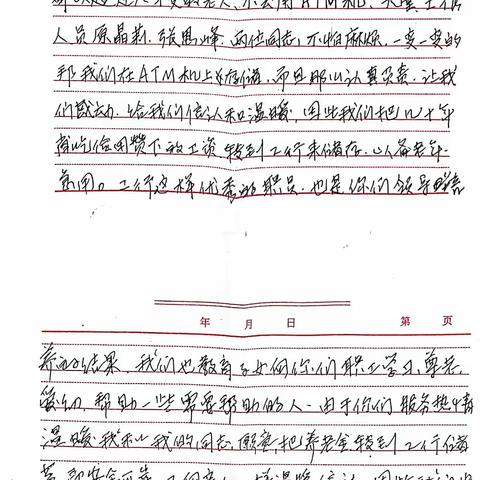 人员原晶莉、张馬峰、两位同志，不怕麻烦，一变一变的
邦我们在ATM机上存储，而且那么认真负责，让我
们感动，给我们信认和温暖，因此我们把几十年
省吃俭用攒下的工资，转到工行来储存，以备老年
急用。工行这样优秀的职员，也是你们领导培
年 月 日 第 页
养的结果，我们也教育子女向你们职工学习，尊老
爱幼，帮助一些需要帮助的人。由于你们服务热情
温暖，我和我的同志，愿意，把养老金转到工行储